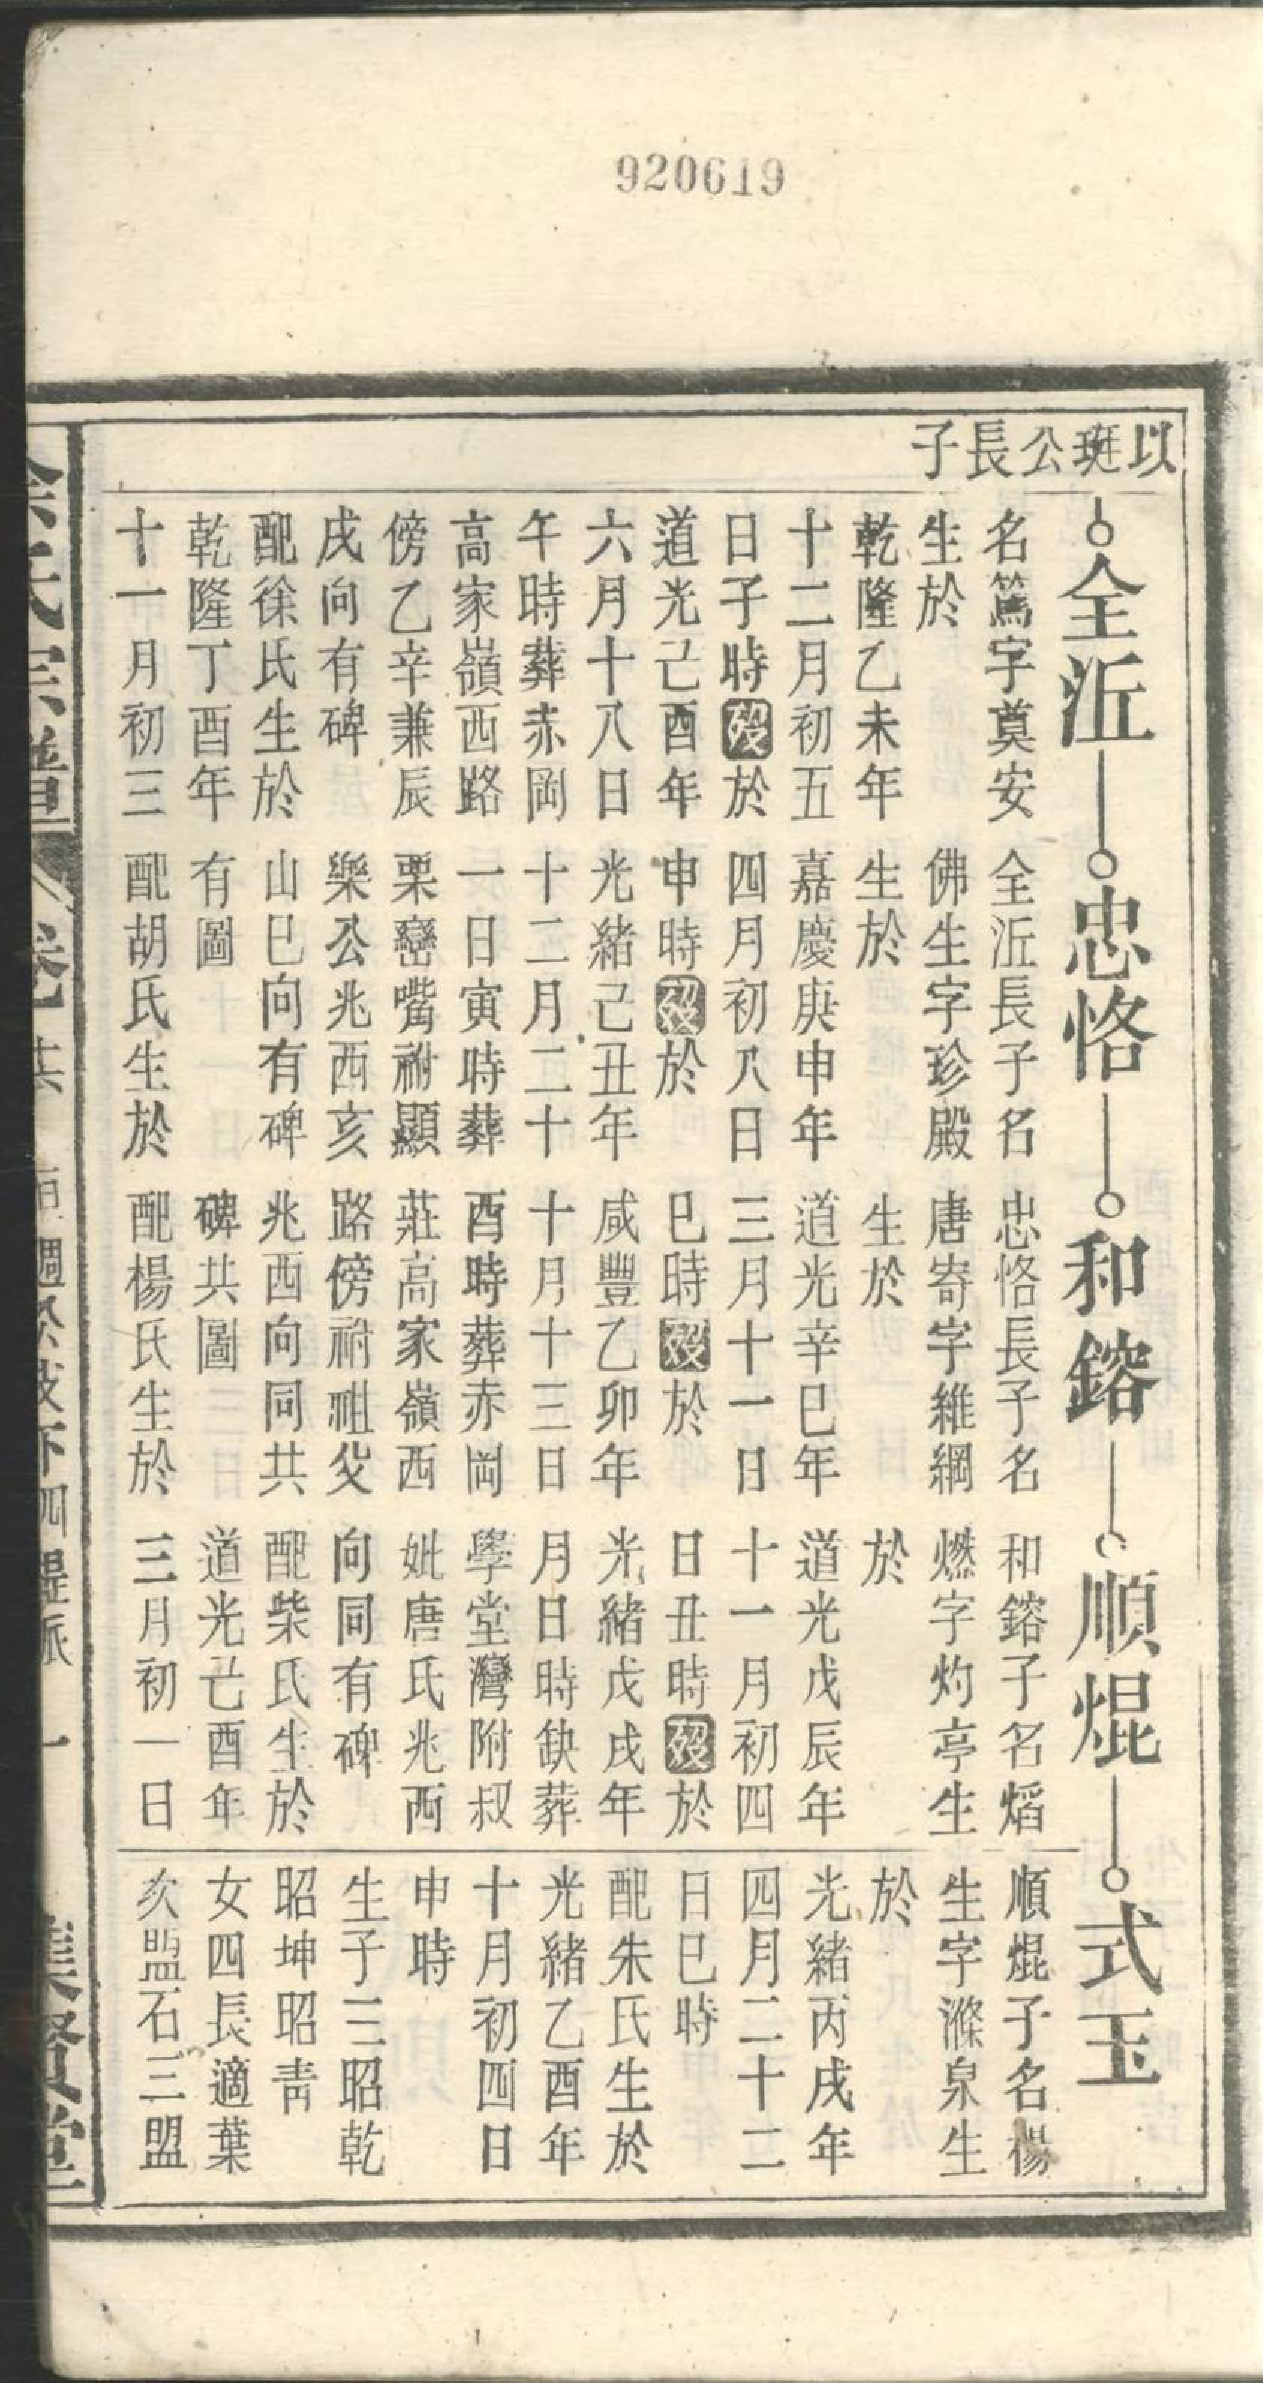 920619
以珽公長子
全泟
忠恪
和鎔
順焜
式玉
名篤字奠安
生於
乾隆乙未年
十二月初五
日子時歿於
道光己酉年
六月十八日
午時葬赤岡
高家嶺西路
傍乙辛兼辰
戌向有碑
配徐氏生於
乾隆丁酉年
十一月初三
全泟長子名
佛生字珍殿
生於
嘉慶庚申年
四月初八日
申時歿於
光緒己丑年
十二月二十
一日寅時葬
栗巒嘴祔顯
樂公兆西亥
山巳向有碑
有圖
配胡氏生於
忠恪長子名
唐寄字維綱
生於
道光辛巳年
三月十一日
巳時歿於
咸豐乙卯年
十月十三日
酉時葬赤岡
莊高家嶺西
路傍祔祖父
兆西向同共
碑共圖
配楊氏生於
和鎔子名熖
燃字灼亭生
於
道光戊辰年
十一月初四
日丑時歿於
光緒戊戌年
月日時缺葬
學堂灣附叔
妣唐氏兆西
向同有碑
配柴氏生於
道光己酉年
三月初一日
順焜子名楊
生字滌泉生
於
光緒丙戌年
四月二十二
日巳時
配朱氏生於
光緒乙酉年
十月初四日
申時
生子三昭乾
昭坤昭靑
女四長適葉
次盟石三盟